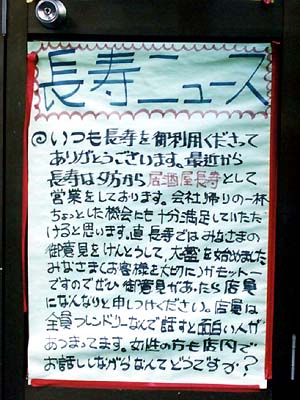 長寿ニュース
◎いつも長寿を御利用くださって
ありがとうございます。最近から
長寿は夕方から居酒屋長寿として
営業をしております。会社帰りの一杯
ちょっとした機会にも十分満足していただ
けると思います。直 長寿ではみなさまの
御意見をけんとうして、大盛を始めました
みなさまくお客様を大切に〉がモットー
ですのでぜひ御意見があったら店員
になんなりと申しつけください。店員は
全員フレンドリーなんで話すと面白い人が
あつまってます。女性の方も店内で
お話ししながらなんてどうですか?